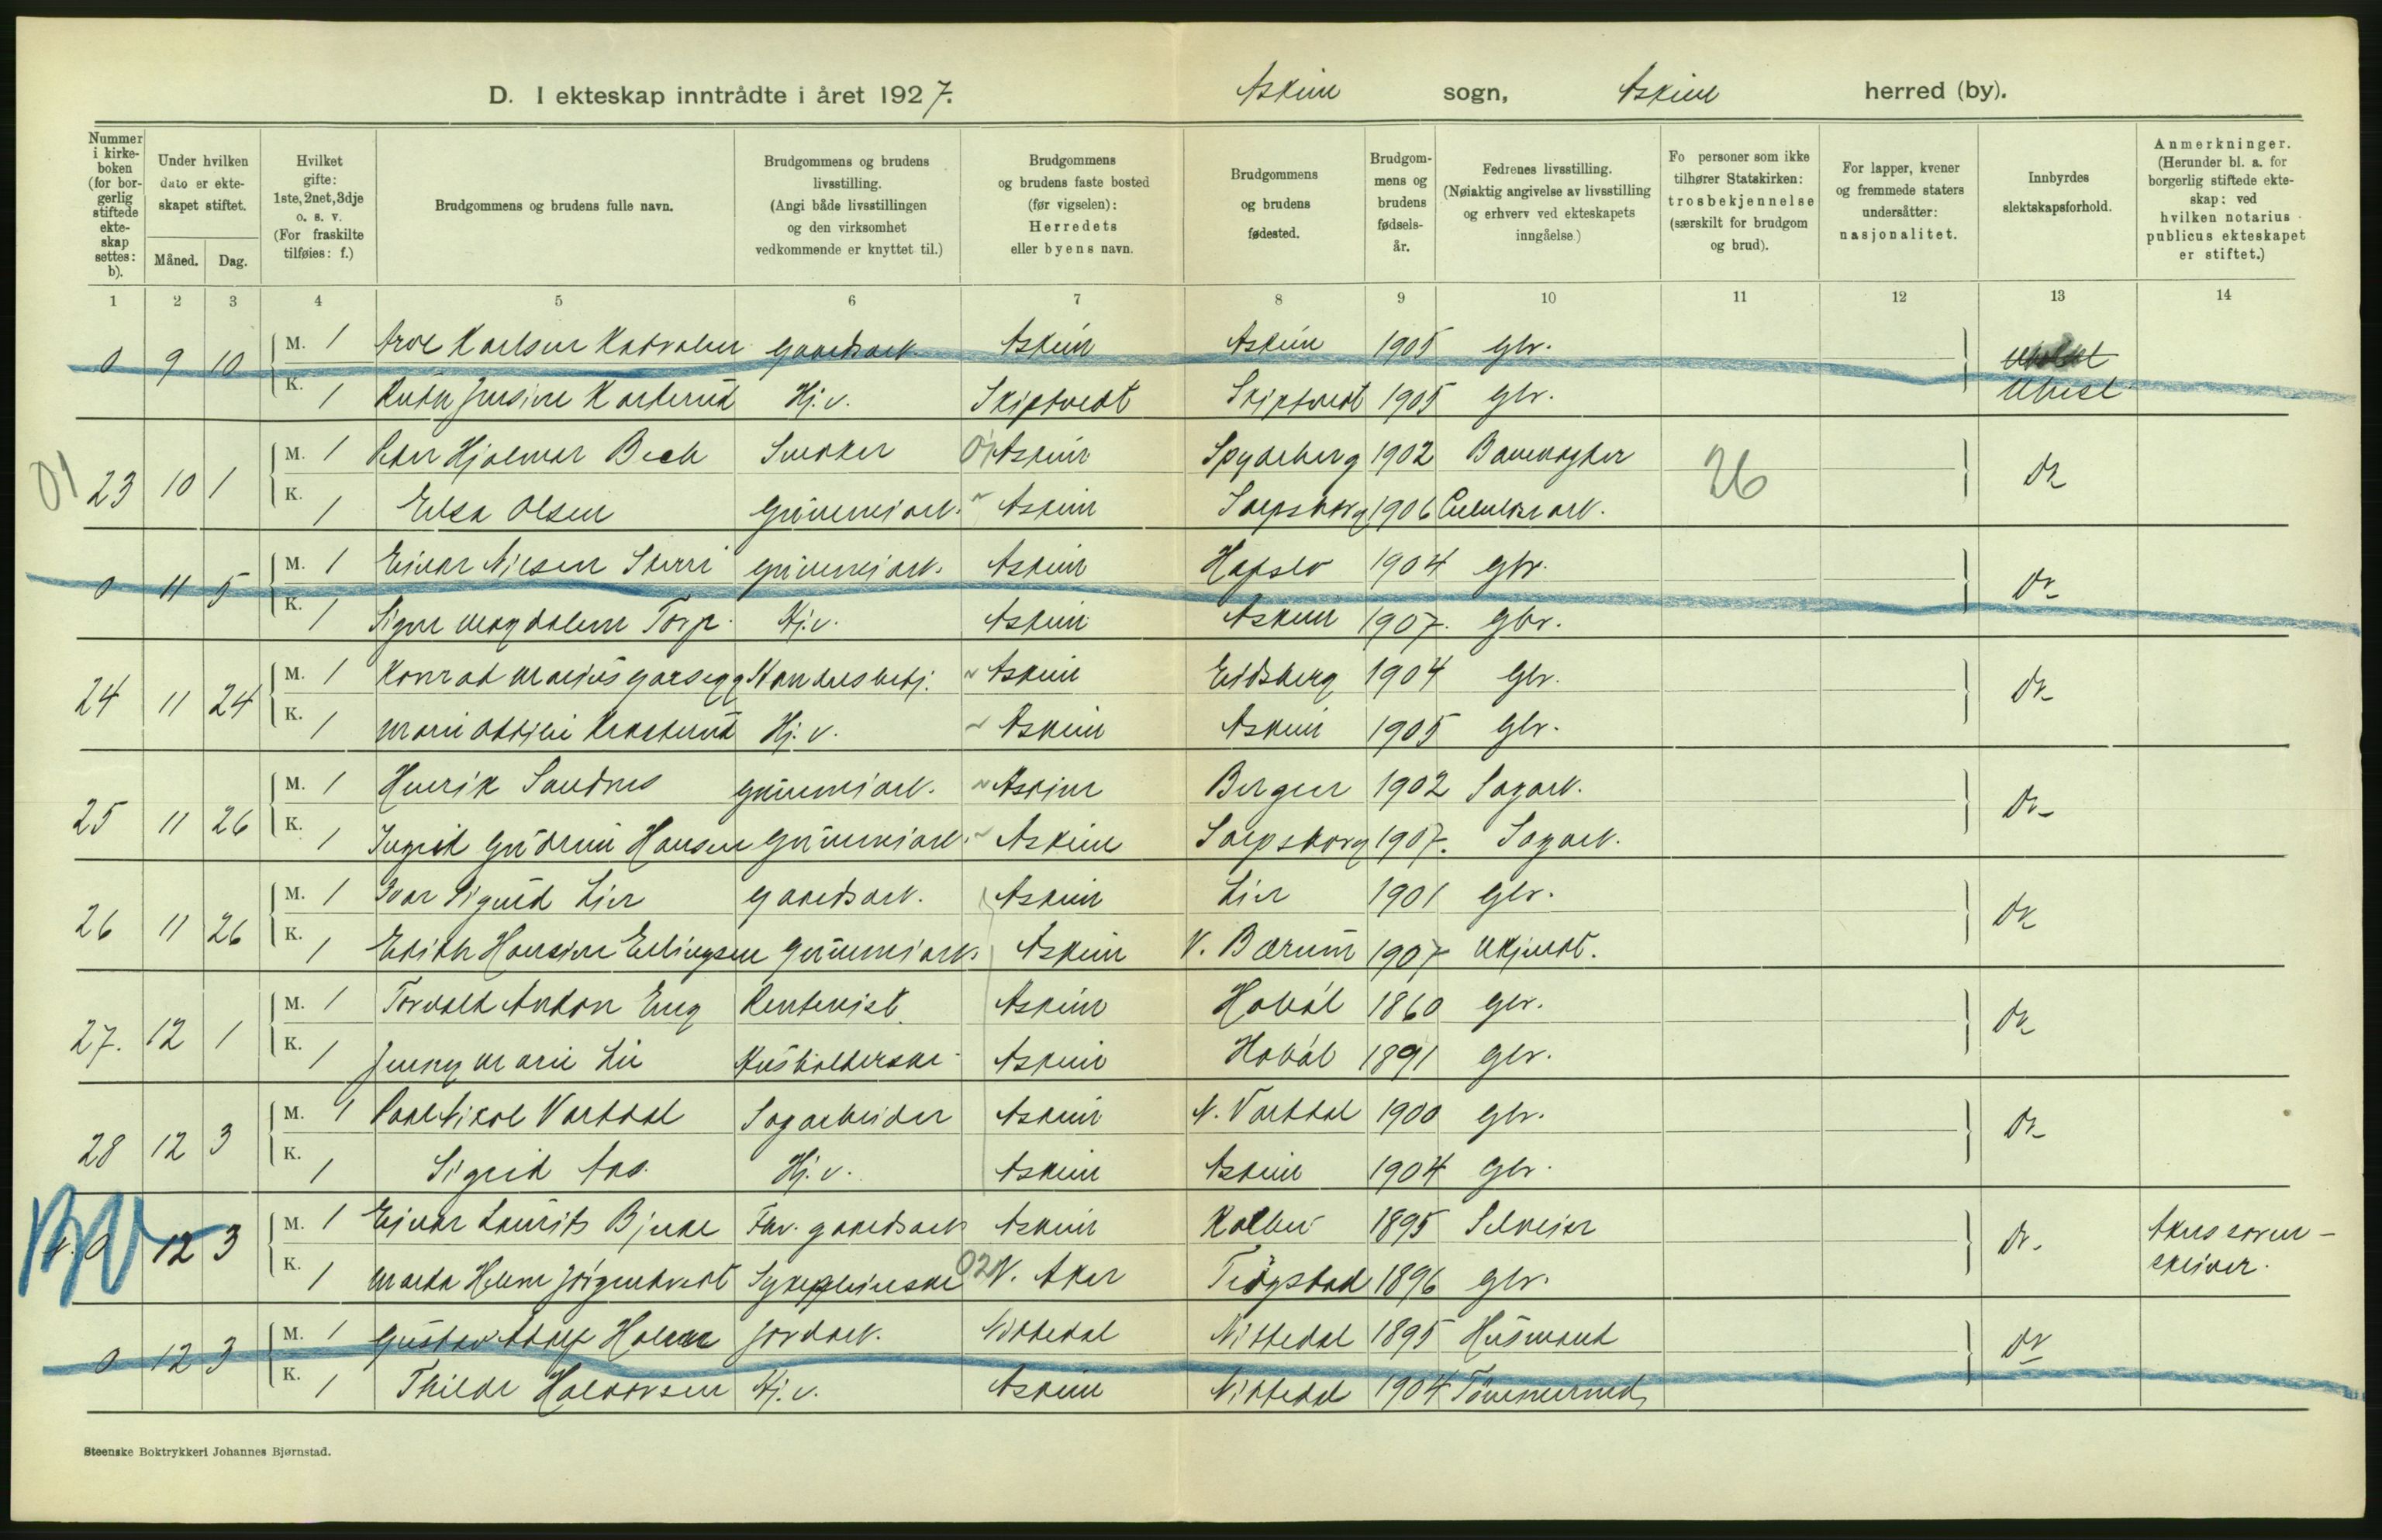 D. I ekteskap inntrådte i året 1927. Askim sogn, Askim herred (by).
Nummer i kirkeboken (for borgerlig stiftede ekteskap settes: b).
Under hvilken dato er ekteskapet stiftet.
Måned. Dag.
Hvilket gifte: 1ste, 2net, 3dje o. s. v. (For fraskilte tilføies: f.)
Brudgommens og brudens fulle navn.
Brudgommens og brudens livsstilling. (Angi både livsstillingen og den virksomhet vedkommende er knyttet til.)
Brudgommens og brudens faste bosted (før vigselen): Herredets eller byens navn.
Brudgommens og brudens fødested.
Brudgommens og brudens fødselsår.
Fedrenes livsstilling. (Nøiaktig angivelse av livsstilling og erhverv ved ekteskapets inngåelse.)
Fo personer som ikke tilhører Statskirken: trosbekjennelse (særskilt for brudgom og brud).
For lapper, kvener og fremmede staters undersåtter: nasjonalitet.
Innbyrdes slektskapsforhold.
Anmerkninger. (Herunder bl. a. for borgerlig stiftede ekteskap: ved hvilken notarius publicus ekteskapet er stiftet.)
1 2 3 4 5 6 7 8 9 10 11 12 13 14
0 9 10 M. 1 Karlsen gaardsarb. Askim Askim 1905 Gbr.
K. 1 Hj.v. Skiptvedt Skiptvedt 1905 Gbr. Ubesl.
01 23 10 1 M. 1 Peter Hjalmar Beck Snekker 01 Askim Spydeberg 1902 Banevogter 26 Do
K. 1 Elsa Olsen Gummiarb. Askim Sarpsborg 1906 Cellulosearb.
0 11 5 M. 1 Einar Nilsen Gummiarb. Askim Hafslo 1904 Gbr. Do
K. 1 Signe Magdalene Torp Hj.v. Askim Askim 1907. Gbr.
24 11 24 M. 1 Konrad Marius Garsegg Handelsbetj. Askim Eidsberg 1904 Gbr. Do
K. 1 Marie Hj.v. Askim Askim 1905 Gbr.
25 11 26 M. 1 Henrik Sandnes Gummiarb. Askim Bergen 1902 Sagarb. Do
K. 1 Ingrid Gudrun Hansen Gummiarb. Askim Sarpsborg 1907. Sagarb.
26 11 26 M. 1 Ivar Sigurd Lier gaardsarb. Askim Lier 1901 Gbr. Do
K. 1 Edith Hansine Ellingsen Gummiarb. Askim V. Bærum 1907 Ukjendt.
27. 12 1 M. 1 Torvald Anton Eng Rentenist Askim Hobøl 1860 Gbr. Do
K. 1 Jenny Marie Lie Husholderske Askim Hobøl 1891 Gbr.
28 12 3 M. 1 Paal Nikol Vartdal Sagarbeider Askim N. Vartdal 1900 Gbr. Do
K. 1 Sigrid Aas Hj.v. Askim Askim 1904 Gbr.
BV 0 12 3 M. 1 Einar Laurits Bjerke Fhv. gaardsarb Askim Kolbu 1895 Selveier Do Akers soren-
K. 1 Marta Helene Jörgentvedt Sykepleierske 02 V. Aker Trögstad 1896 Gbr. skriver.
0 12 3 M. 1 Gustav Adolf Jordarb. Nittedal Nittedal 1895 Husmand Do
K. 1 Thilde Halvorsen Hj.v. Askim Nittedal 1904 Tömmermed
Steenske Boktrykkeri Johannes Bjørnstad.